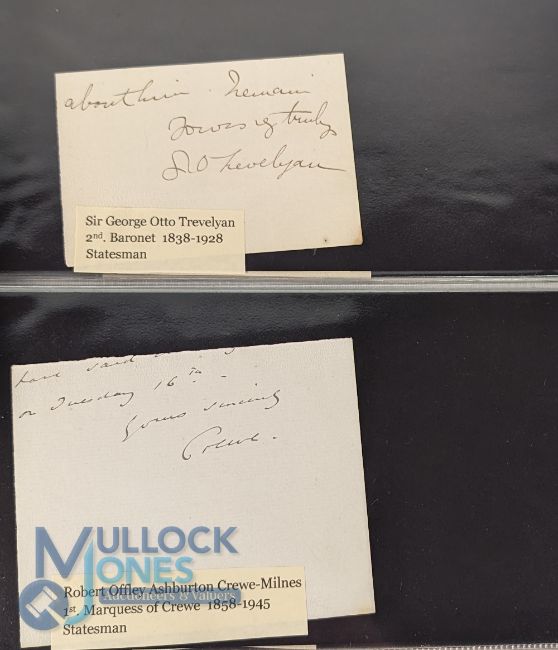 about him. I remain
Yours vy truly
G O Trevelyan
Sir George Otto Trevelyan
2nd. Baronet 1838-1928
Statesman
have said
on Tuesday 16th -
Yours sincerely
Crewe.
MULLOCK
JONES
Auctioneers & Valuers
Robert Offley Ashburton Crewe-Milnes
1st. Marquess of Crewe 1858-1945
Statesman